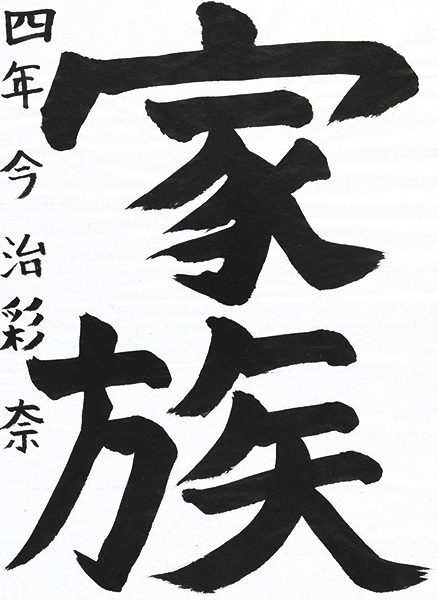 家族
四年 今治彩奈